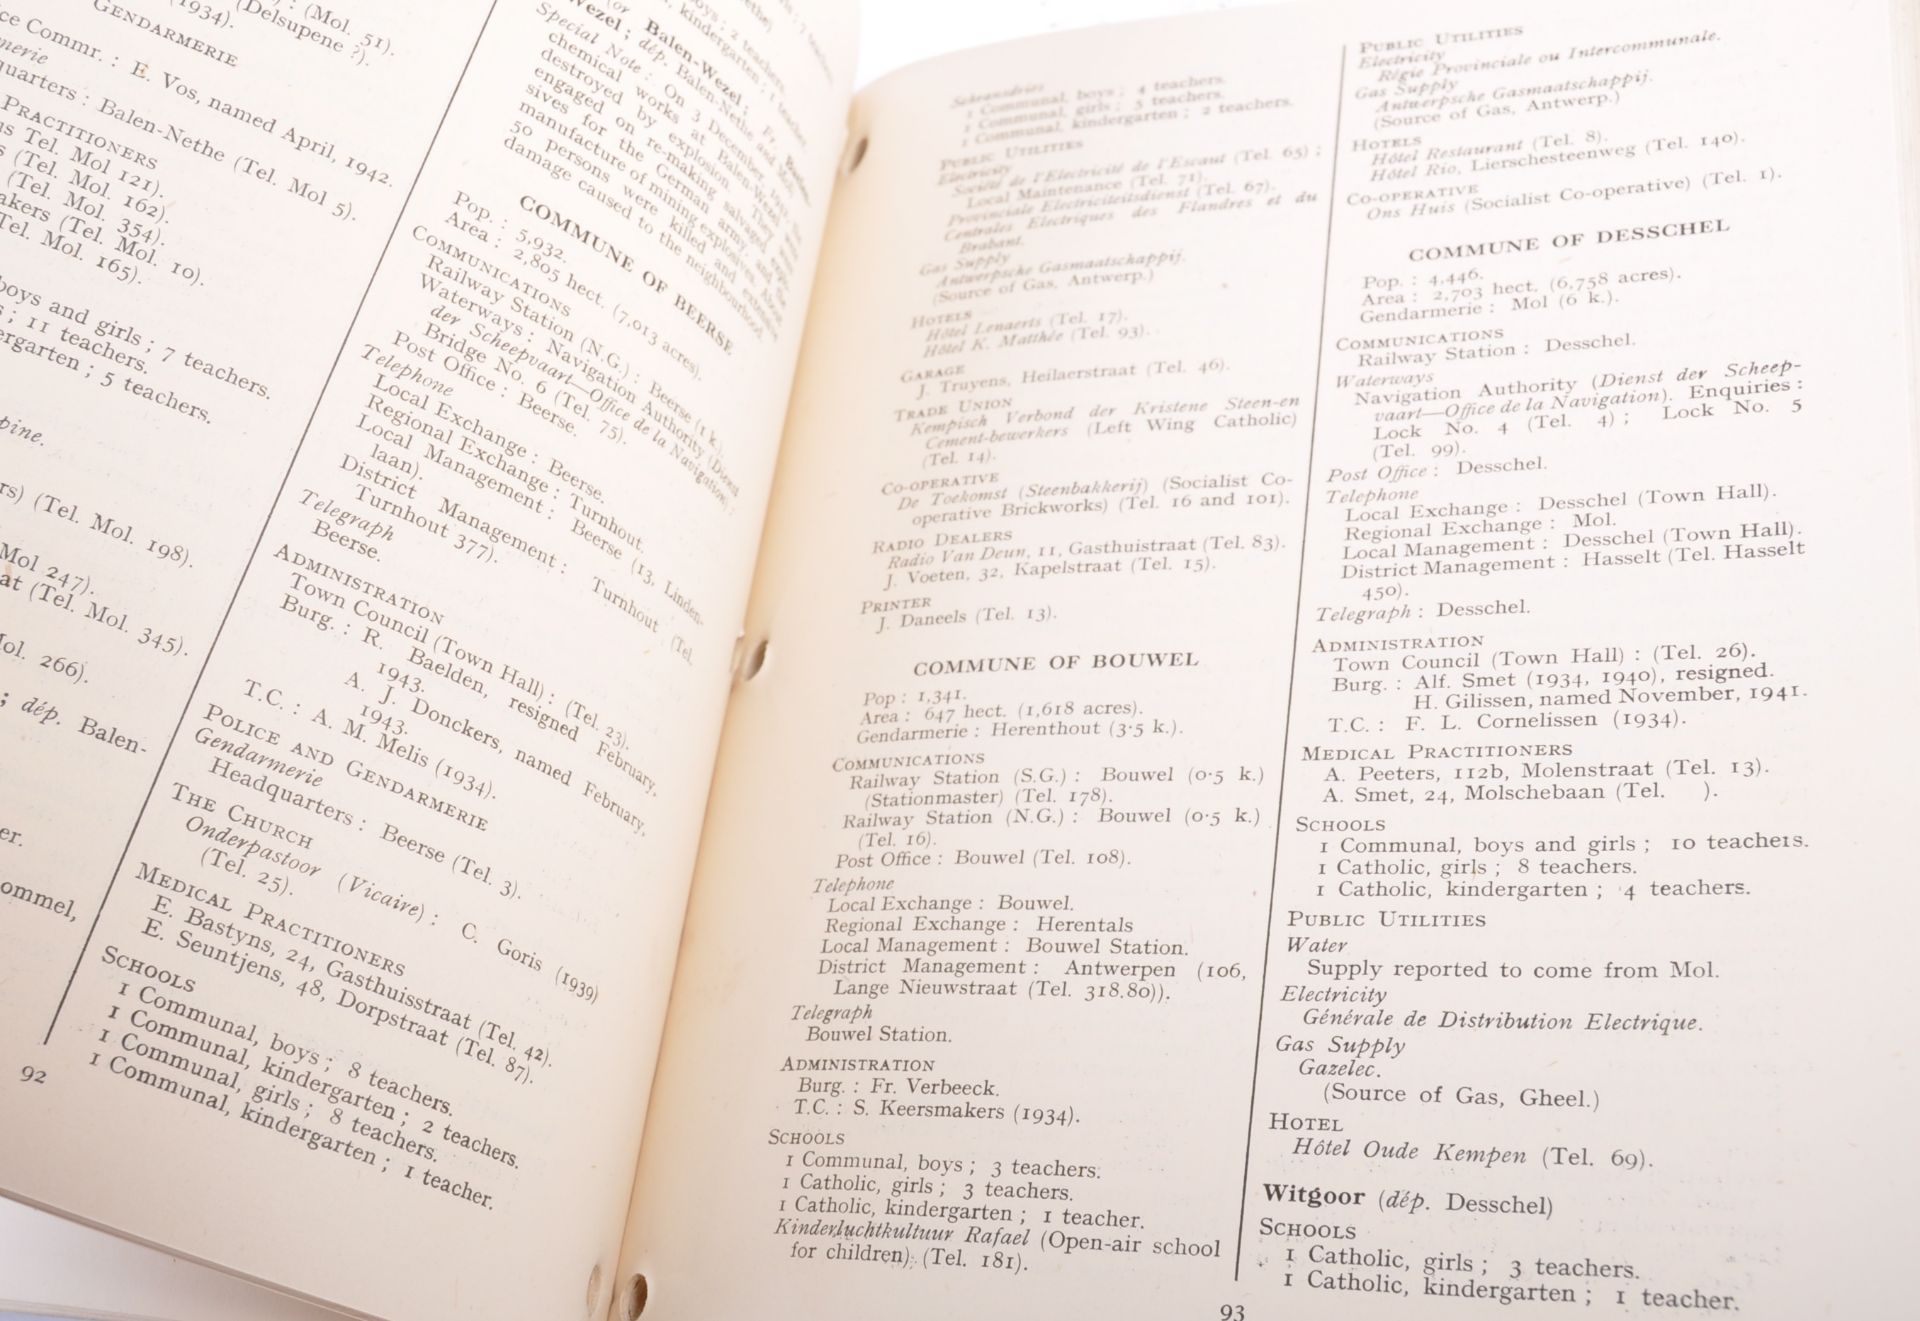 : (Mol. 51).
(1934). (Delsupene ?).
GENDARMERIE
ice Commr. : E. Vos, named April, 1942.
merie
quarters : Balen-Nethe (Tel. Mol 5).
PRACTITIONERS
us Tel. Mol 121).
s (Tel. Mol. 162).
(Tel. Mol. 354).
akers (Tel. Mol. 10).
Tel. Mol. 165).
boys and girls ; 7 teachers.
s ; 11 teachers.
ergarten ; 5 teachers.
pine.
rs) (Tel. Mol. 198).
Mol 247).
at (Tel. Mol. 345).
Mol. 266).
; dép. Balen-
er.
ommel,
92
boys ; 2 teachers.
kindergarten ; 1 teacher.
Wezel (or Balen-Wezel ; Fr.
Wezel ; dép. Balen-Nethe and Mol.
Special Note : On 3 December, 1941, the
chemical works at Balen-Wezel was
destroyed by explosion. They were
engaged on re-making salvaged explo-
sives for the German army, and the
manufacture of mining explosives. About
50 persons were killed and extensive
damage caused to the neighbourhood.
COMMUNE OF BEERSE
Pop. : 5,932.
Area : 2,805 hect. (7,013 acres).
COMMUNICATIONS
Railway Station (N.G.) : Beerse (1 k.).
Waterways : Navigation Authority (Dienst
der Scheepvaart—Office de la Navigation) ;
Bridge No. 6 (Tel. 75).
Post Office : Beerse.
Telephone
Local Exchange : Beerse.
Regional Exchange : Turnhout.
Local Management : Beerse (13, Linden-
laan).
District Management : Turnhout (Tel.
Turnhout 377).
Telegraph
Beerse.
ADMINISTRATION
Town Council (Town Hall) : (Tel. 23).
Burg. : R. Baelden, resigned February,
1943.
A. J. Donckers, named February,
1943.
T.C. : A. M. Melis (1934).
POLICE AND GENDARMERIE
Gendarmerie
Headquarters : Beerse (Tel. 3).
THE CHURCH
Onderpastoor (Vicaire) : C. Goris (1939)
(Tel. 25).
MEDICAL PRACTITIONERS
E. Bastyns, 24, Gasthuisstraat (Tel. 42).
E. Seuntjens, 48, Dorpstraat (Tel. 87).
SCHOOLS
1 Communal, boys ; 8 teachers.
1 Communal, kindergarten ; 2 teachers.
1 Communal, girls ; 8 teachers.
1 Communal, kindergarten ; 1 teacher.
Schransdries
1 Communal, boys ; 4 teachers.
1 Communal, girls ; 5 teachers.
1 Communal, kindergarten ; 2 teachers.
PUBLIC UTILITIES
Electricity
Société de l'Electricité de l'Escaut (Tel. 65) ;
Local Maintenance (Tel. 71).
Provinciale Electriciteitsdienst (Tel. 67).
Centrales Electriques des Flandres et du
Brabant.
Gas Supply
Antwerpsche Gasmaatschappij.
(Source of Gas, Antwerp.)
HOTELS
Hôtel Lenaerts (Tel. 17).
Hôtel K. Matthée (Tel. 93).
GARAGE
J. Truyens, Heilaerstraat (Tel. 46).
TRADE UNION
Kempisch Verbond der Kristene Steen-en
Cement-bewerkers (Left Wing Catholic)
(Tel. 14).
CO-OPERATIVE
De Toekomst (Steenbakkerij) (Socialist Co-
operative Brickworks) (Tel. 16 and 101).
RADIO DEALERS
Radio Van Deun, 11, Gasthuistraat (Tel. 83).
J. Voeten, 32, Kapelstraat (Tel. 15).
PRINTER
J. Daneels (Tel. 13).
COMMUNE OF BOUWEL
Pop : 1,341.
Area : 647 hect. (1,618 acres).
Gendarmerie : Herenthout (3·5 k.).
COMMUNICATIONS
Railway Station (S.G.) : Bouwel (0·5 k.)
(Stationmaster) (Tel. 178).
Railway Station (N.G.) : Bouwel (0·5 k.)
(Tel. 16).
Post Office : Bouwel (Tel. 108).
Telephone
Local Exchange : Bouwel.
Regional Exchange : Herentals
Local Management : Bouwel Station.
District Management : Antwerpen (106,
Lange Nieuwstraat (Tel. 318.80)).
Telegraph
Bouwel Station.
ADMINISTRATION
Burg. : Fr. Verbeeck.
T.C. : S. Keersmakers (1934).
SCHOOLS
1 Communal, boys ; 3 teachers.
1 Catholic, girls ; 3 teachers.
1 Catholic, kindergarten ; 1 teacher.
Kinderluchtkultuur Rafael (Open-air school
for children). (Tel. 181).
93
PUBLIC UTILITIES
Electricity
Régie Provinciale ou Intercommunale.
Gas Supply
Antwerpsche Gasmaatschappij.
(Source of Gas, Antwerp.)
HOTELS
Hôtel Restaurant (Tel. 8).
Hôtel Rio, Lierschesteenweg (Tel. 140).
CO-OPERATIVE
Ons Huis (Socialist Co-operative) (Tel. 1).
COMMUNE OF DESSCHEL
Pop. : 4,446.
Area : 2,703 hect. (6,758 acres).
Gendarmerie : Mol (6 k.).
COMMUNICATIONS
Railway Station : Desschel.
Waterways
Navigation Authority (Dienst der Scheep-
vaart—Office de la Navigation). Enquiries :
Lock No. 4 (Tel. 4) ; Lock No. 5
(Tel. 99).
Post Office : Desschel.
Telephone
Local Exchange : Desschel (Town Hall).
Regional Exchange : Mol.
Local Management : Desschel (Town Hall).
District Management : Hasselt (Tel. Hasselt
450).
Telegraph : Desschel.
ADMINISTRATION
Town Council (Town Hall) : (Tel. 26).
Burg. : Alf. Smet (1934, 1940), resigned.
H. Gilissen, named November, 1941.
T.C. : F. L. Cornelissen (1934).
MEDICAL PRACTITIONERS
A. Peeters, 112b, Molenstraat (Tel. 13).
A. Smet, 24, Molschebaan (Tel. ).
SCHOOLS
1 Communal, boys and girls ; 10 teachers.
1 Catholic, girls ; 8 teachers.
1 Catholic, kindergarten ; 4 teachers.
PUBLIC UTILITIES
Water
Supply reported to come from Mol.
Electricity
Générale de Distribution Electrique.
Gas Supply
Gazelec.
(Source of Gas, Gheel.)
HOTEL
Hôtel Oude Kempen (Tel. 69).
Witgoor (dép. Desschel)
SCHOOLS
1 Catholic, girls ; 3 teachers.
1 Catholic, kindergarten ; 1 teacher.